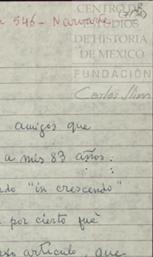 546 - Narvarte
CENTRO DE
ESTUDIOS
DE HISTORIA
DE MÉXICO
FUNDACIÓN
Carlos Slim
amigos que
a mis 83 años.
"in crescendo"
por cierto qué
artículo, que